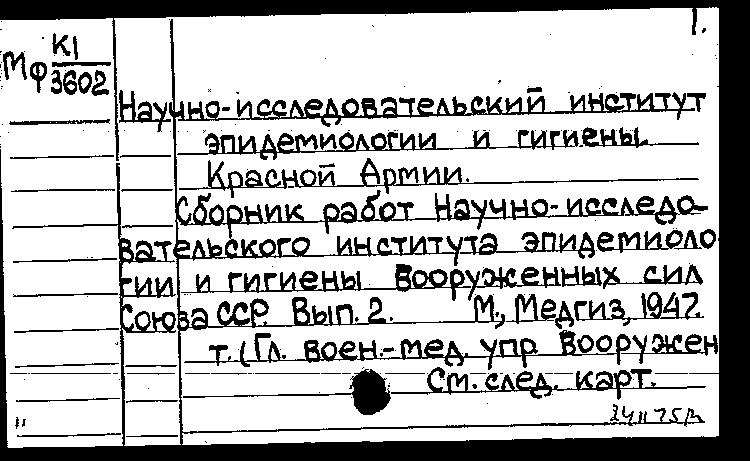 1.
Мф К1/3602
Научно-исследовательский институт
эпидемиологии и гигиены
Красной Армии.
Сборник работ Научно-исследо-
вательского института эпидемиоло
гии и гигиены Вооруженных сил
Союза ССР. Вып. 2. М., Медгиз, 1947.
т. (Гл. воен.-мед. упр. Вооружен
См. след. карт.